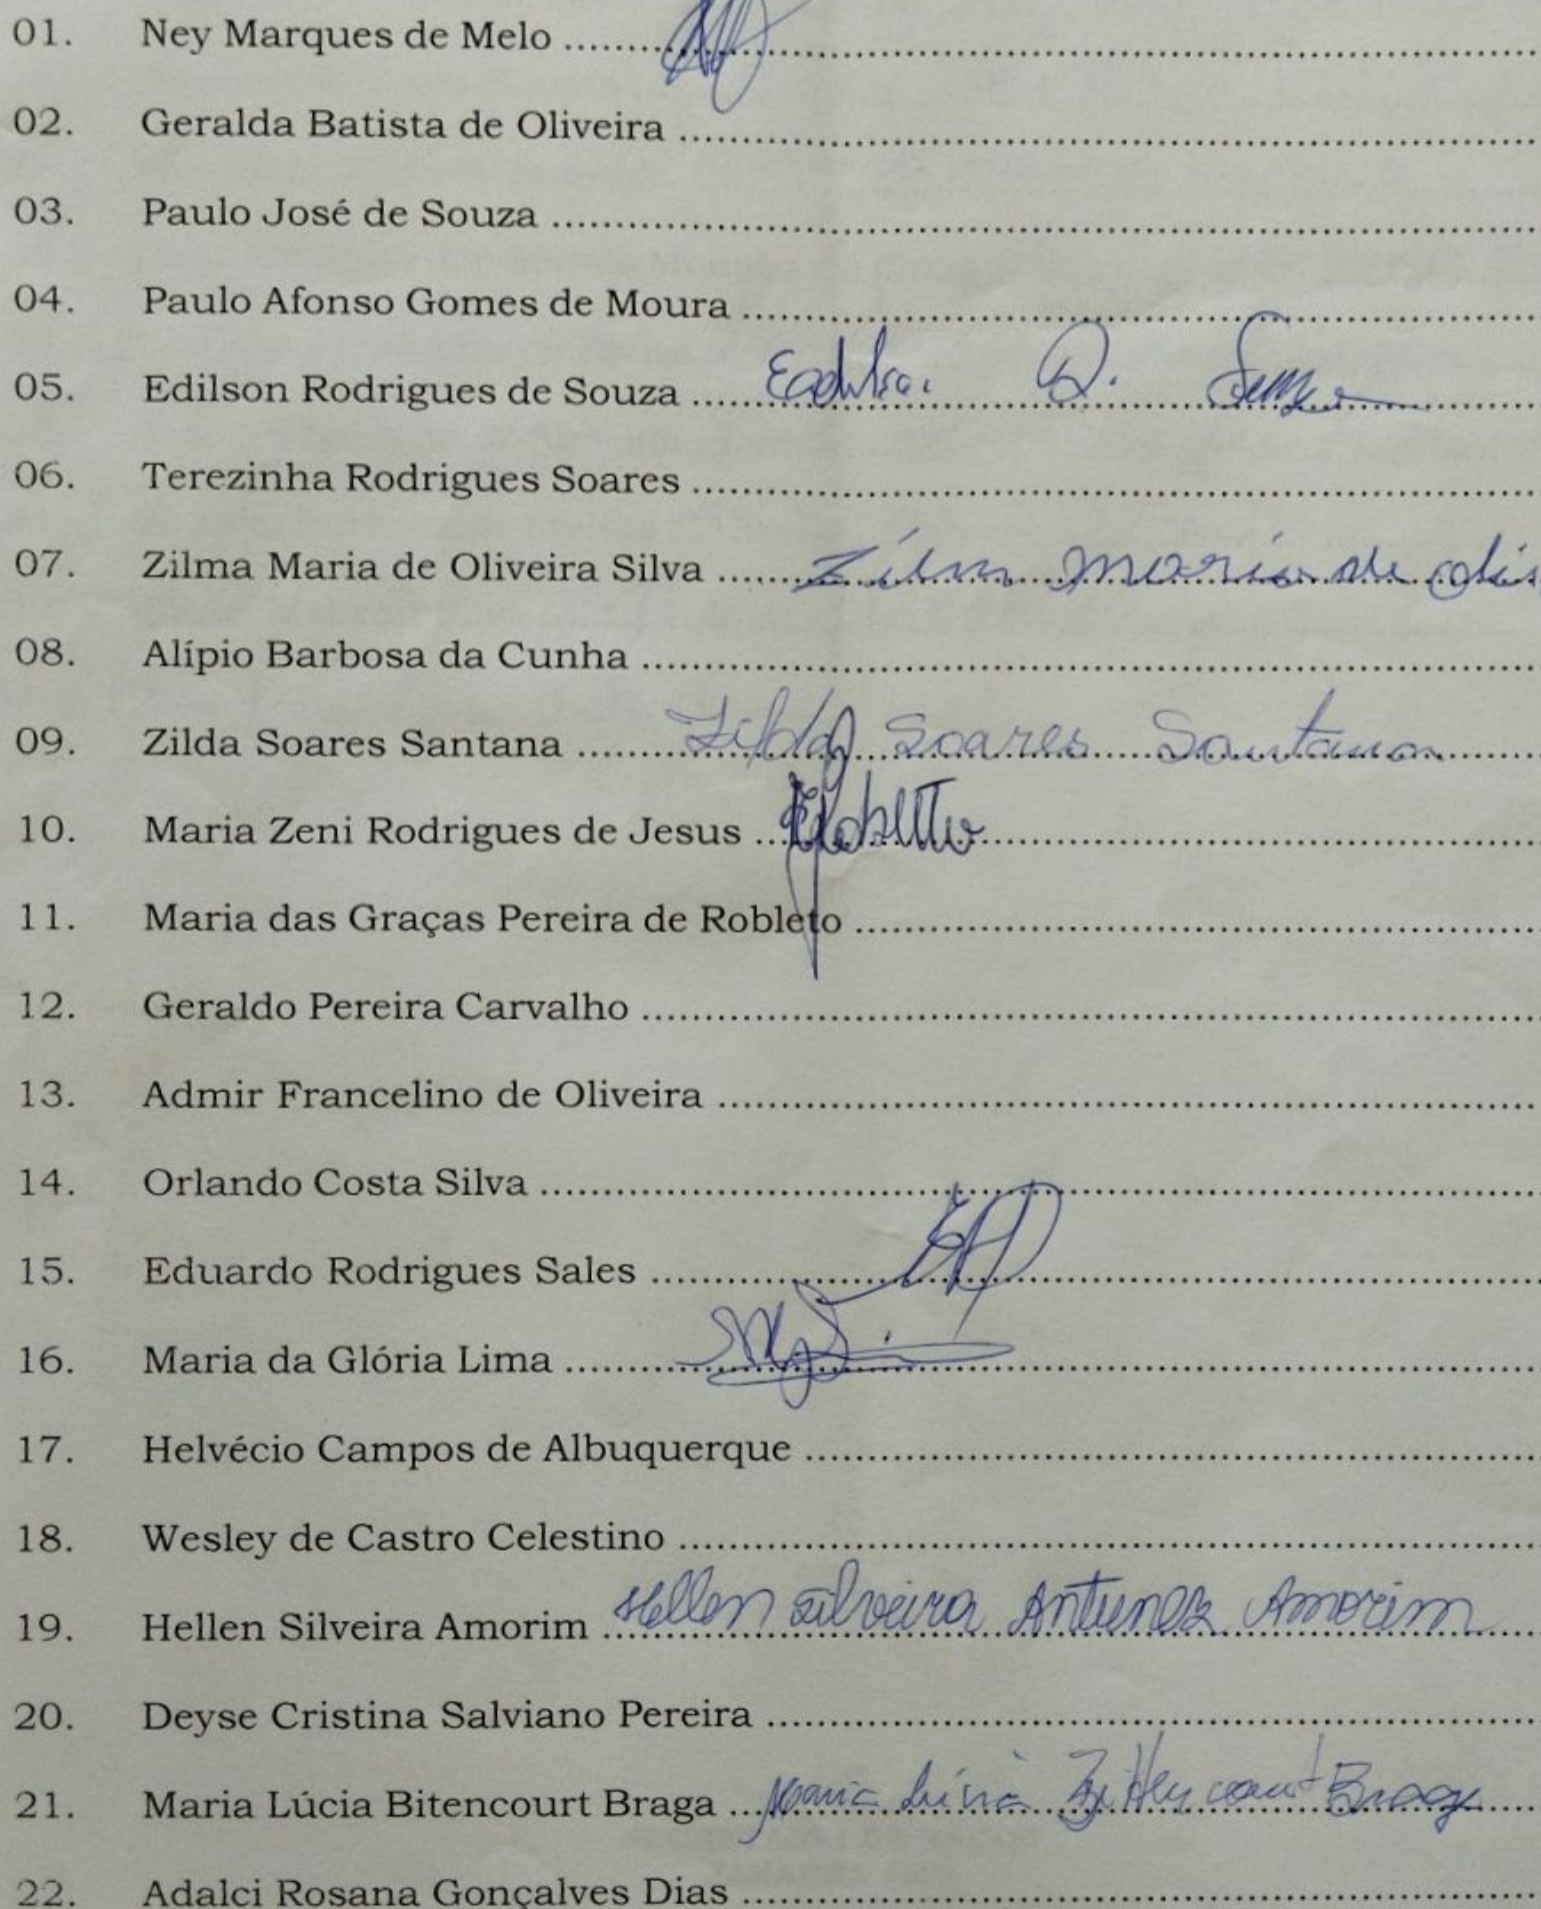 01. Ney Marques de Melo ........................
02. Geralda Batista de Oliveira ........................
03. Paulo José de Souza ........................
04. Paulo Afonso Gomes de Moura ........................
05. Edilson Rodrigues de Souza ........................
06. Terezinha Rodrigues Soares ........................
07. Zilma Maria de Oliveira Silva ........ Zilma Maria de
08. Alípio Barbosa da Cunha ........................
09. Zilda Soares Santana ........ Zilda Soares Santana
10. Maria Zeni Rodrigues de Jesus ........................
11. Maria das Graças Pereira de Robleto ........................
12. Geraldo Pereira Carvalho ........................
13. Admir Francelino de Oliveira ........................
14. Orlando Costa Silva ........................
15. Eduardo Rodrigues Sales ........................
16. Maria da Glória Lima ........................
17. Helvécio Campos de Albuquerque ........................
18. Wesley de Castro Celestino ........................
19. Hellen Silveira Amorim ........ Hellen Silveira Antunes Amorim
20. Deyse Cristina Salviano Pereira ........................
21. Maria Lúcia Bitencourt Braga ........ Maria Lúcia Bittencourt Braga
22. Adalci Rosana Gonçalves Dias ........................